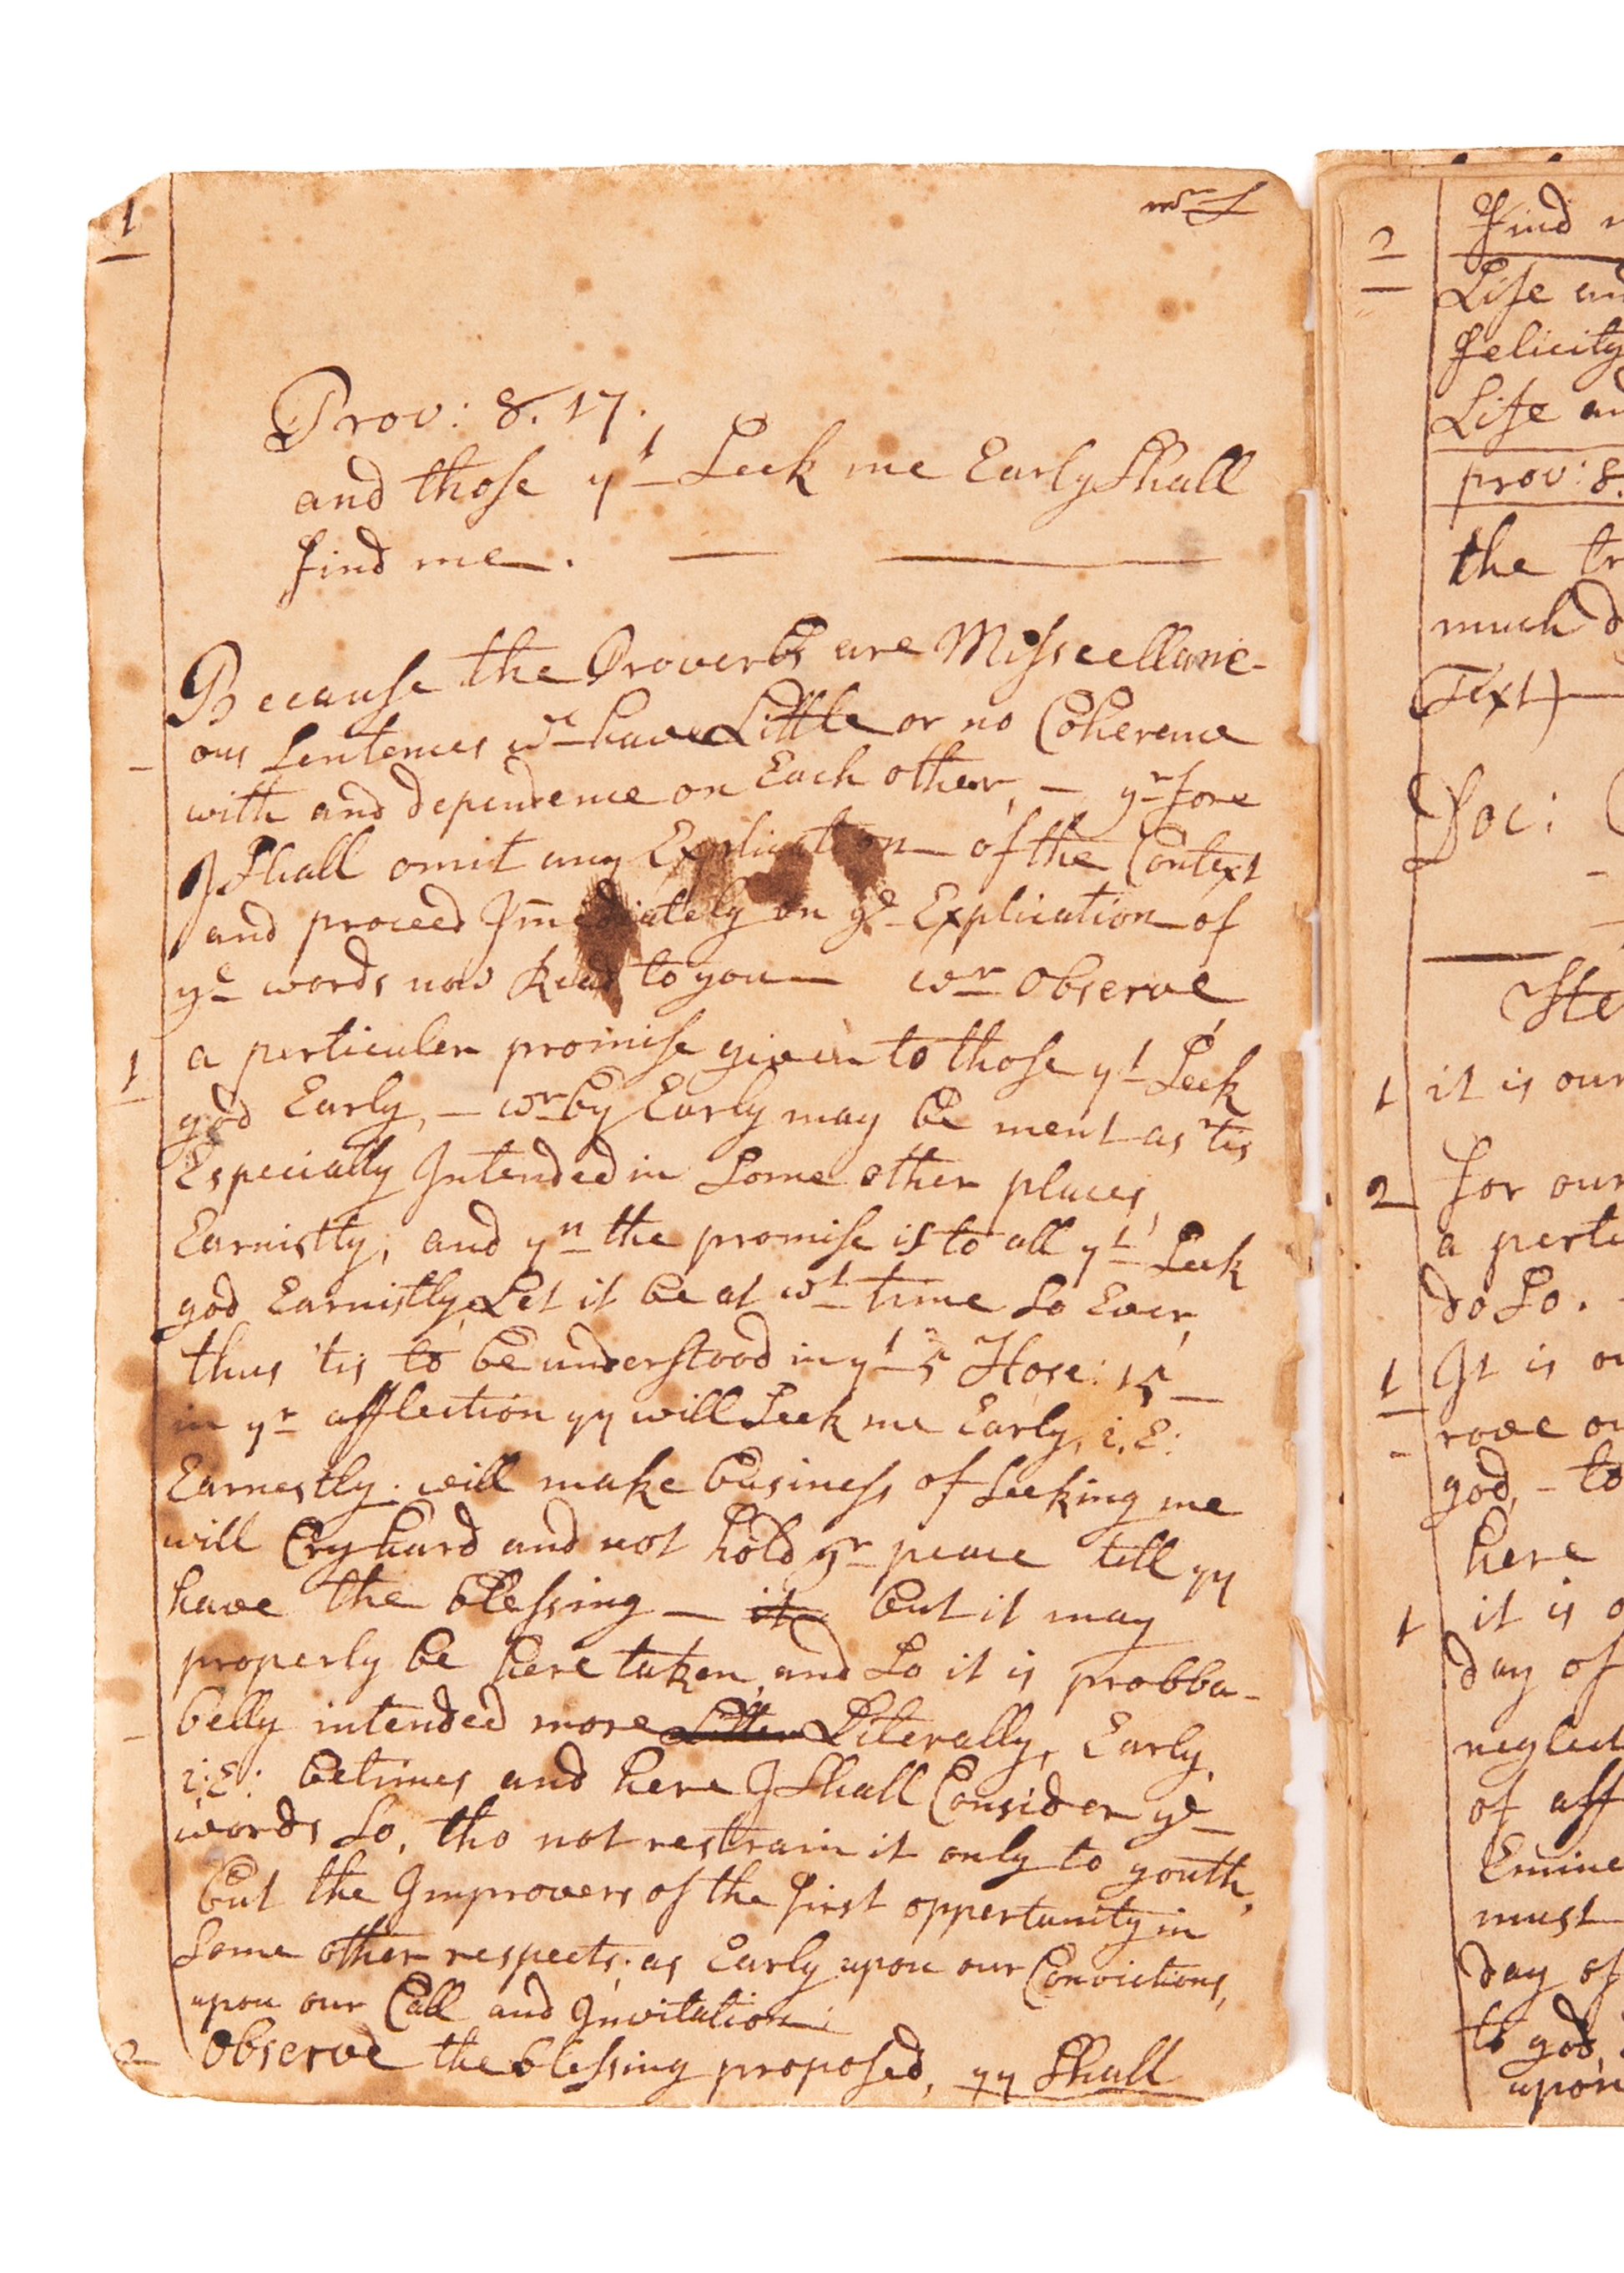 1
Prov: 8. 17.
and those yt Seek me Early Shall
find me.
Because the Proverbs are Misscellanie-
ous sentences wc have Little or no Coherence
with and dependence on Each other, — yrfore
I Shall omit any Explication of the Context
and proceed Im̄ediately on ye Explication of
ye words now Read to you — wr observe
1 a perticuler promise given to those yt Seek
god Early, — wrby Early may be ment as 'tis
Especially Intended in Some other places,
Earnistly; and yn the promise is to all yt Seek
god Earnistly, Let it be at wt time So Ever,
thus 'tis to be understood in yt 5 Hose: 15
in yr afflection yy will Seek me Early, i.E:
Earnestly: will make business of Seeking me
will Cry hard and not hold yr peace till yy
have the blessing — it but it may
properly be here taken, and So it is probba-
belly intended more Litter Literally, Early,
i:E: betimes and here I Shall Consider ye
words So, tho not restrain it only to youth,
but the Improvers of the first oppertunity in
Some other respects; as Early upon our Convictions,
upon our Call and Invitation:
2 Observe the blessing proposed, yy Shall
2 find
Life
felicity
Life
prov: 8.
the
much
Text)
Doc:
1 it is our
2 for our
a
do So.
1 It is
rove
god, – to
here
1 it is
day of
neglect
of
must
day of
to god,
upon